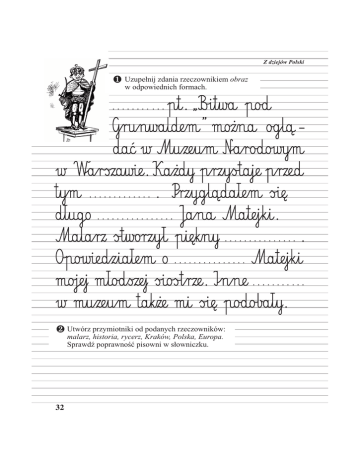 Z dziejów Polski
❶ Uzupełnij zdania rzeczownikiem obraz
w odpowiednich formach.
........... pt. „Bitwa pod
Grunwaldem” można oglą –
dać w Muzeum Narodowym
w Warszawie. Każdy przystaje przed
tym ............. . Przyglądałem się
długo ................ Jana Matejki.
Malarz stworzył piękny ............... .
Opowiedziałem o .............. Matejki
mojej młodszej siostrze. Inne ..........
w muzeum także mi się podobały.
❷ Utwórz przymiotniki od podanych rzeczowników:
malarz, historia, rycerz, Kraków, Polska, Europa.
Sprawdź poprawność pisowni w słowniczku.
32